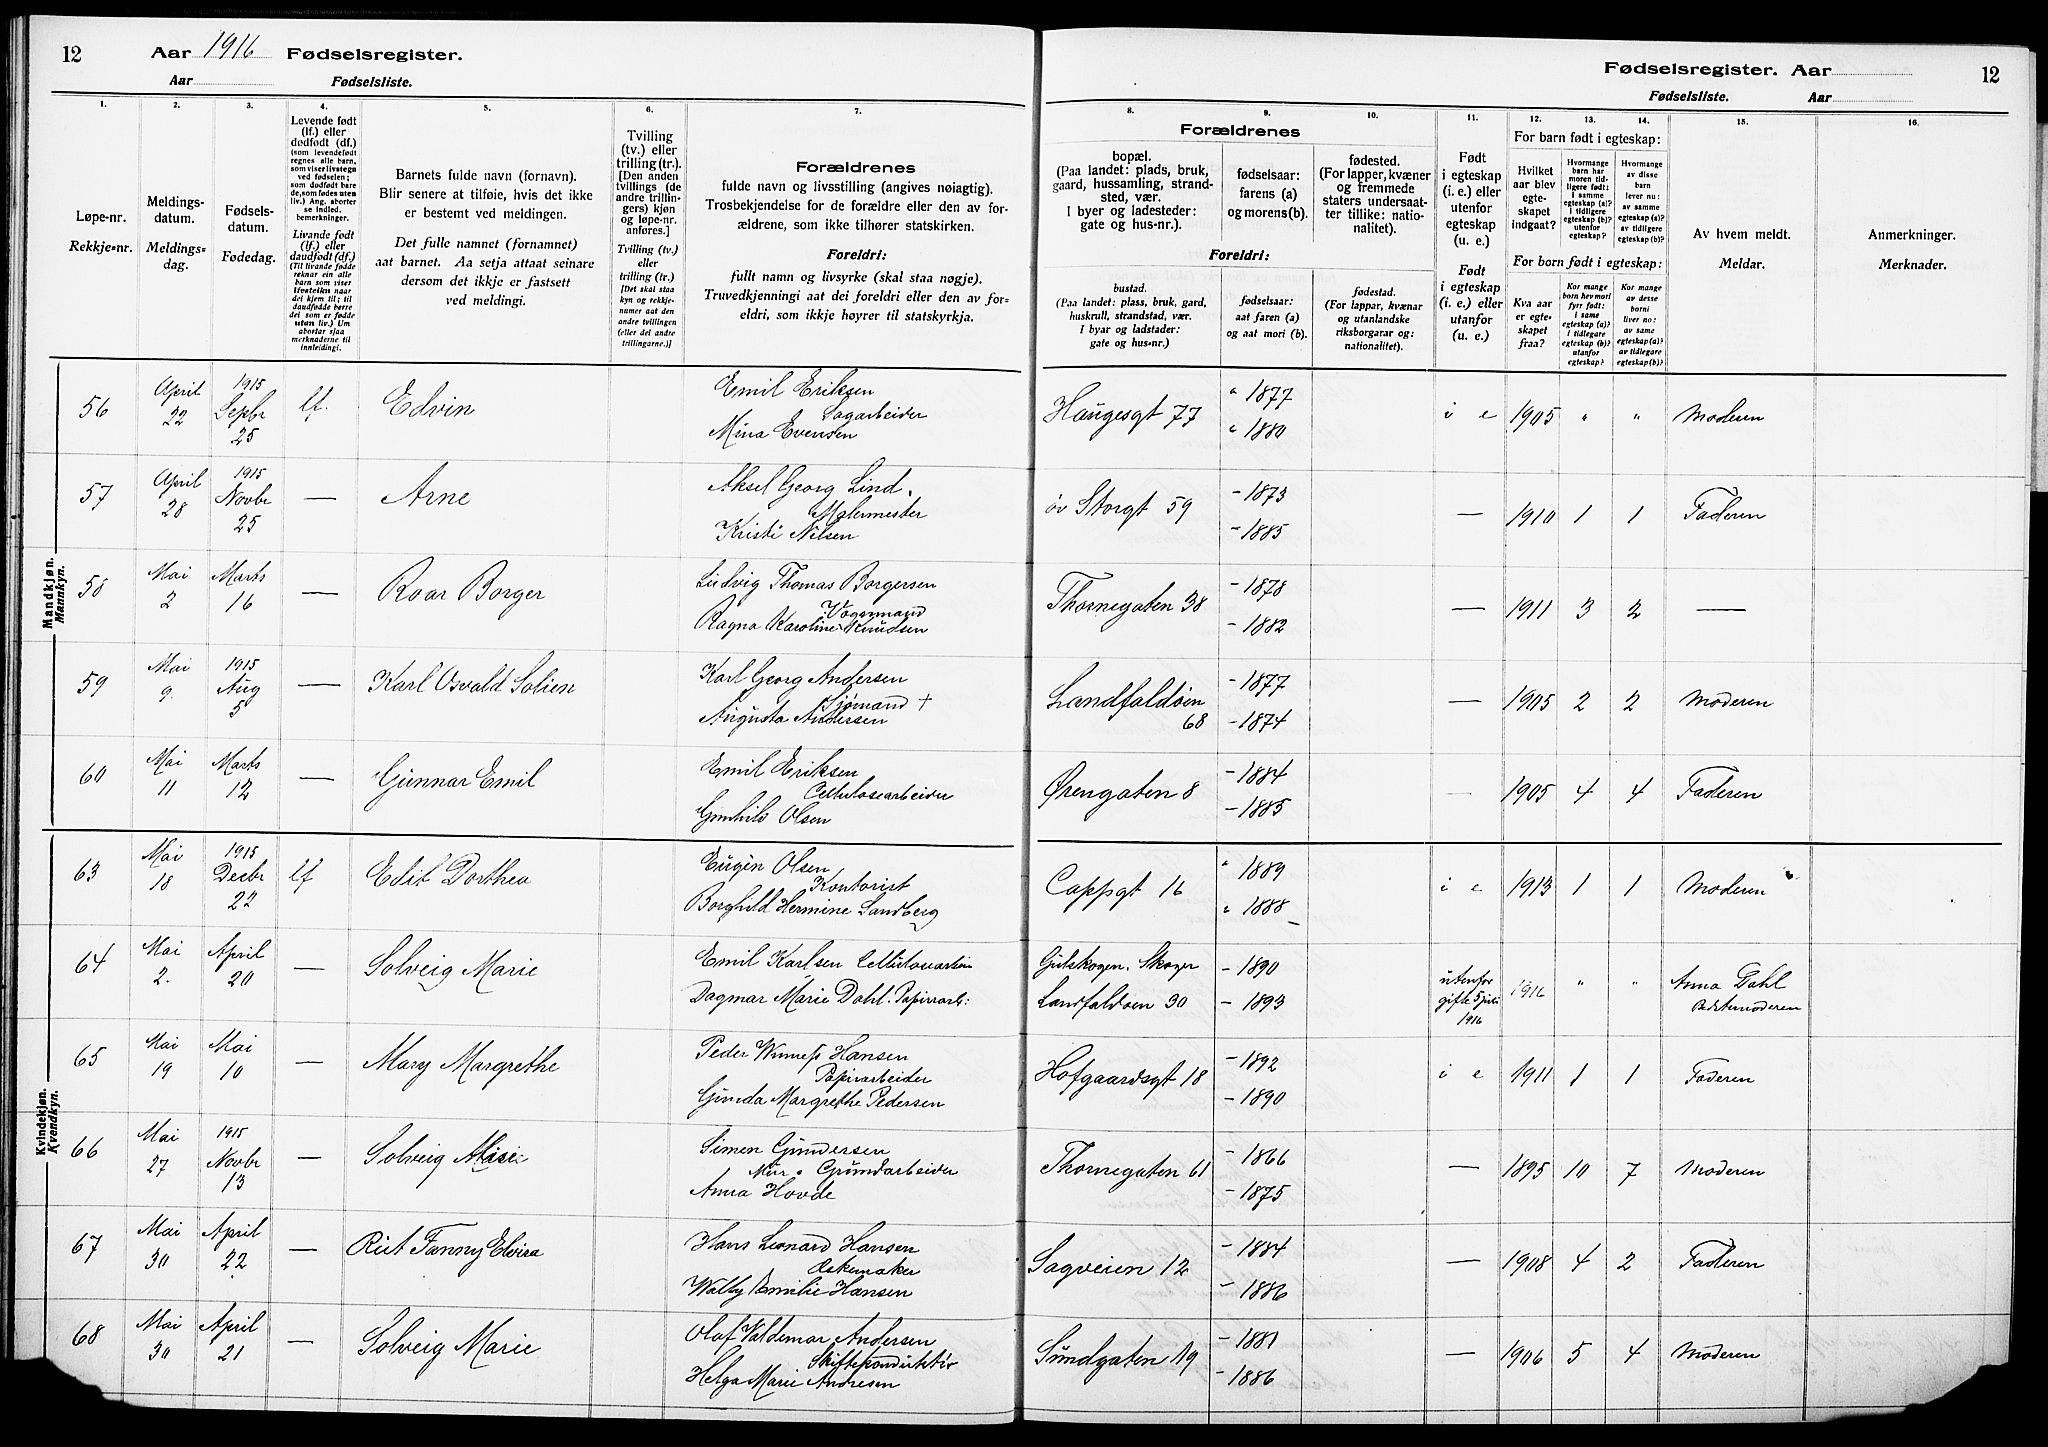 12 Aar 1916 Fødselsregister.
Aar Fødselsliste.
Fødselsregister. Aar 12
Fødselsliste. Aar
1. 2. 3. 4. 5. 6. 7. 8. 9. 10. 11. 12. 13. 14. 15. 16.
Løpe-nr.
Rekkje-nr.
Meldings-
datum.
Meldings-
dag.
Fødsels-
datum.
Fødedag.
Levende født
(lf.) eller
dødfødt (df.)
(som levendefødt
regnes alle barn,
som viser livstegn
ved fødselen;
som dødfødt bare
de, som fødes uten
liv.) Ang. aborter
se indled.
bemerkninger.
Livande født
(lf.) eller
daudfødt (df.)
(Til livande fødde
reknar ein alle
barn som viser
livsteikn naar
dei kjem til; til
daudfødde berre
dei som er fødde
utan liv.) Um
abortar sjaa
merknaderne til
innleidingi.
Barnets fulde navn (fornavn).
Blir senere at tilføie, hvis det ikke
er bestemt ved meldingen.
Det fulle namnet (fornamnet)
aat barnet. Aa setja attaat seinare
dersom det ikkje er fastsett
ved meldingi.
Tvilling
(tv.) eller
trilling (tr.).
[Den anden
tvillings (de
andre trillin-
gers) kjøn
og løpe-nr.
anføres.]
Tvilling (tv.)
eller
trilling (tr.)
[Det skal staa
kyn og rekkje-
numer aat den
andre tvillingen
(eller dei andre
trillingarne.)]
Forældrenes
fulde navn og livsstilling (angives nøiagtig).
Trosbekjendelse for de forældre eller den av for-
ældrene, som ikke tilhører statskirken.
Foreldri:
fullt namn og livsyrke (skal staa nøgje).
Truvedkjenningi aat dei foreldri eller den av for-
eldri, som ikkje høyrer til statskyrkja.
Forældrenes
bopæl.
(Paa landet: plads, bruk,
gaard, hussamling, strand-
sted, vær.
I byer og ladesteder:
gate og hus-nr.).
fødselsaar:
farens (a)
og morens (b).
fødested.
(For lapper, kvæner
og fremmede
staters undersaat-
ter tillike: natio-
nalitet).
Foreldri:
bustad.
(Paa landet: plass, bruk, gard,
huskrull, strandstad, vær.
I byar og ladstader:
gate og hus-nr.)
fødselsaar:
aat faren (a)
og aat mori (b).
fødestad.
(For lappar, kvænar
og utanlandske
riksborgarar og:
nationalitet).
Født
i egteskap
(i. e.) eller
utenfor
egteskap
(u. e.)
Født
i egteskap
(i. e.) eller
utanfor
(u. e.)
For barn født i egteskap:
Hvilket
aar blev
egte-
skapet
indgaat?
Hvormange
barn har
moren tid-
ligere født:
i samme
egteskap (a)?
i tidligere
egteskap (b)?
utenfor
egteskap?
Hvormange
av disse
barn
lever nu:
av samme
egteskap (a)?
av tidligere
egteskap (b)?
For born født i egteskap:
Kva aar
er egte-
skapet
fraa?
Kor mange
born hev mori
fyrr født:
i same
egteskap (a)?
i tidlegare
egteskap (b)?
utanfor
egteskap?
Kor mange
av desse
borni
liver no:
av same
egteskap (a)?
av tidlegare
egteskap (b)?
Av hvem meldt.
Meldar.
Anmerkninger.
Merknader.
Mandkjøn.
Mannkyn.
56 April 22 1915 Sepbr 25 lf. Edvin Emil Eriksen Sagarbeider Mina Evensen Haugesgt 77 " 1877 " 1880 i e 1905 " " Moderen
57 April 28 1915 Novbr 25 — Arne Aksel Georg Lind. Malermester Kristi Nilsen øv Storgt 59 - 1873 - 1885 — 1910 1 1 Faderen
58 Mai 2 Marts 16 — Roar Borger Ludvig Thomas Borgersen Vognmand Ragna Karoline Knudsen Thornegaten 38 - 1878 - 1882 — 1911 3 2 —
59 Mai 9. 1915 Aug 5 — Karl Osvald Solien Karl Georg Andersen Sjømand + Augusta Andersen Landfaldøen 68 - 1877 - 1874 — 1905 2 2 Moderen
60 Mai 11 Marts 12 — Gunnar Emil Emil Eriksen Cellulosearbeider Gunhild Olsen Ørengaten 8 - 1884 - 1885 — 1905 4 4 Faderen
Kvindekjøn.
Kvendkyn.
63 Mai 18 1915 Decbr 22 lf Edit Dorthea Eugen Olsen Kontorist Borghild Hermine Sandberg Cappsgt 16 " 1889 " 1888 i e 1913 1 1 Moderen
64 Mai 2. April 20 — Solveig Marie Emil Karlsen Dagmar Marie Dahl. Papirarb: Gulskogen. Skoger Landfaldøen 30 - 1890 - 1893 utenfor gifte 5 1916 1916 " " Anna Dahl
65 Mai 19 Mai 10 — Mary Margrethe Peder Hansen Papirarbeider Gunda Margrethe Pedersen Hofgaardsgt 18 - 1892 - 1890 i e 1911 1 1 Faderen
66 Mai 27 1915 Novbr 13 — Solveig Alise Simen Gundersen Mur. Grundarbeider Anna Hovde Thornegaten 61 - 1866 - 1875 — 1895 10 7 Moderen
67 Mai 30 April 22 — Rut Fanny Elvira Hans Leonard Hansen Æskemaker Walby Emilie Hansen Sagveien 12 - 1884 - 1886 — 1908 4 2 Faderen
68 Mai 30 April 21 — Solveig Marie Olaf Valdemar Andersen Skiftekonduktør Helga Marie Andresen Sundgaten 19 - 1881 - 1886 — 1906 5 4 Moderen